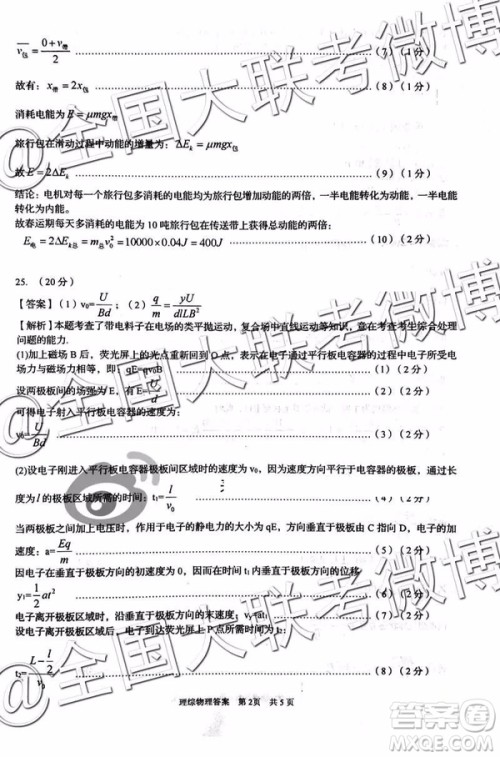 $\overline{v_{包}}=\frac{0+v_{带}}{2}$ ……(7)(1分)
故有：$x_{带}=2x_{包}$ ……(8)(1分)
消耗电能为 $E=\mu mgx_{带}$
旅行包在滑动过程中动能的增量为：$\Delta E_k=\mu mgx_{包}$
故 $E=2\Delta E_k$ ……(9)(1分)
结论：电机对每一个旅行包多消耗的电能均为旅行包增加动能的两倍，一半电能转化为动能，一半电能转化为内能。
故春运期每天多消耗的电能为10吨旅行包在传送带上获得总动能的两倍：
$E_{电}=2\Delta E_{k总}=m_{总}v_0^2=10000\times0.04J=400J$ ……(10)(2分)
25.（20分）
【答案】（1）$v_0=\frac{U}{Bd}$；（2）$\frac{q}{m}=\frac{yU}{dlLB^2}$
【解析】本题考查了带电粒子在电场的类平抛运动，复合场中直线运动等知识，意在考查考生综合处理
问题的能力.
(1)加上磁场B后，荧光屏上的光点重新回到O点，表示在电子通过平行板电容器的过程中电子所受电
场力与磁场力相等，即：qE=qv₀B ……(1)(2分)
设两极板间的场强为E，有E=$\frac{U}{d}$ ……(2)(2分)
可得电子射入平行板电容器的速度为：
$v_0=\frac{U}{Bd}$ ……(3)(2分)
(2)设电子刚进入平行板电容器极板间区域时的速度为v₀，因为速度方向平行于电容器的极板，通过长
度为l的极板区域所需的时间：$t_1=\frac{l}{v_0}$ ……(4)(2分)
当两极板之间加上电压时，作用于电子的静电力的方向垂直于极板由C指向D，电子的加速度为：
$a=\frac{Eq}{m}$ ……(5)(2分)
因电子在垂直于极板方向的初速度为0，因而在垂直于极板方向的位移
$y_1=\frac{1}{2}at^2$ ……(6)(2分)
电子离开极板区域时，沿垂直于极板方向的末速度：$v_y=at_1$ ……(7)(2分)
设电子离开极板区域后，电子到达荧光屏上P点所需时间为t₂：
$t_2=\frac{L-\frac{l}{2}}{v_0}$ ……(8)(2分)
理综物理答案 第2页 共5页
@全国大联考微博
@全国大联考微博
@全国大联考微博
答案圈
MXQE.COM